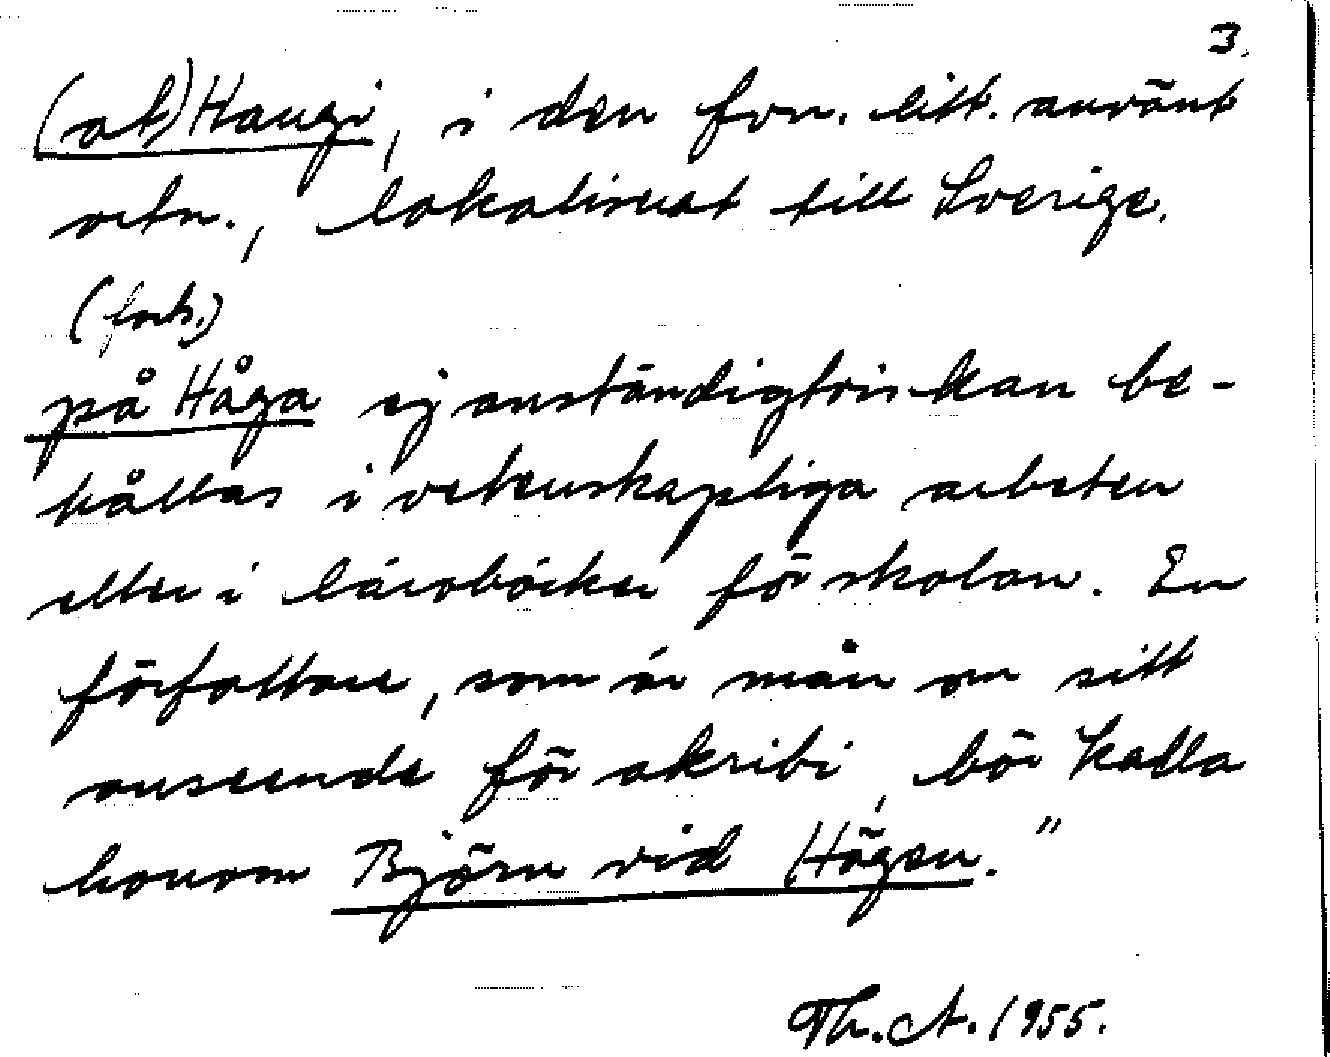 3.
(at) Haugi, i den fvn. litt. använt
ortn., lokaliserat till Sverige.
(forts.)
på Håga ej anständigtvis kan be-
hållas i vetenskapliga arbeten
eller i läroböcker för skolan. En
författare, som är mån om sitt
anseende för akribi, bör kalla
honom Björn vid Högen."
Th. A. 1955.